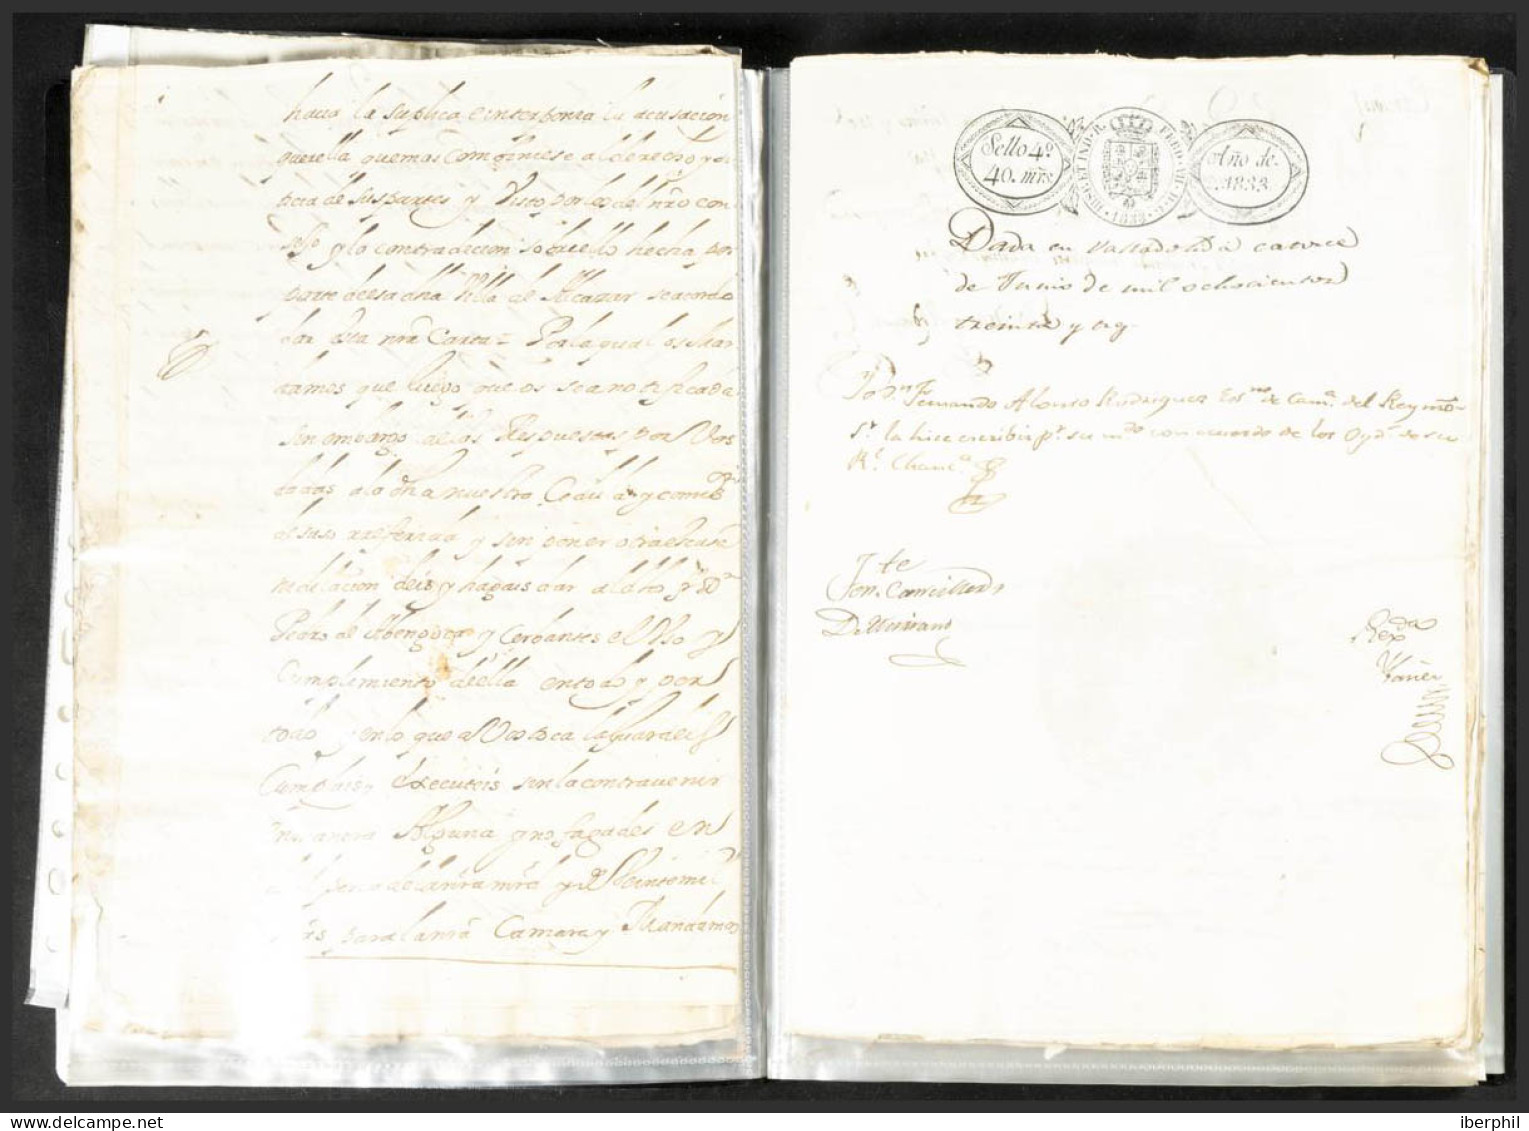 haua la suplica e interponia la acusacion
querella que mas combiniese al derecho y
ticia de sus partes y Visto por los del nro con
sejo y la contradicion sobre ello hecha por
parte de esa dha Villa de Alcazar se acordo
dar esta nra Carta = Por la qual os Man
damos que luego que os sea notificada
sin embargo de las Respuestas por Vos
dadas a la dha nuestra Cedula y como
de suso rreferida y sin poner otra escusa
ni dilacion deis y hagais dar al dho
Pedro de Abengoza y Cerbantes el Uso y
Cumplimiento de ella en todo y por
todo y en lo que a Vos toca la guardeis
Cumplais y Executeis sin la contravenir
manera Alguna y no fagades en
pena de la nra mrd y de Veinte mil
mrs para la nra Camara y Mandamos
Sello 4º.
40. mrs.
HISP. ET IND. R. FERD. VII. D. G. 1833
Año de
1833.
Dada en Valladolid a catorce
de Junio de mil ochocientos
treinta y tres
Yo Dn. Fernando Alonso Rodriguez Esno. de Cama. del Rey nro.
Sr. la hice escribir pr. su mdo. con acuerdo de los Oyds. de su
Rl. Chanca.
Tte
Con. Canciller
Regda
Yañez
iberphil